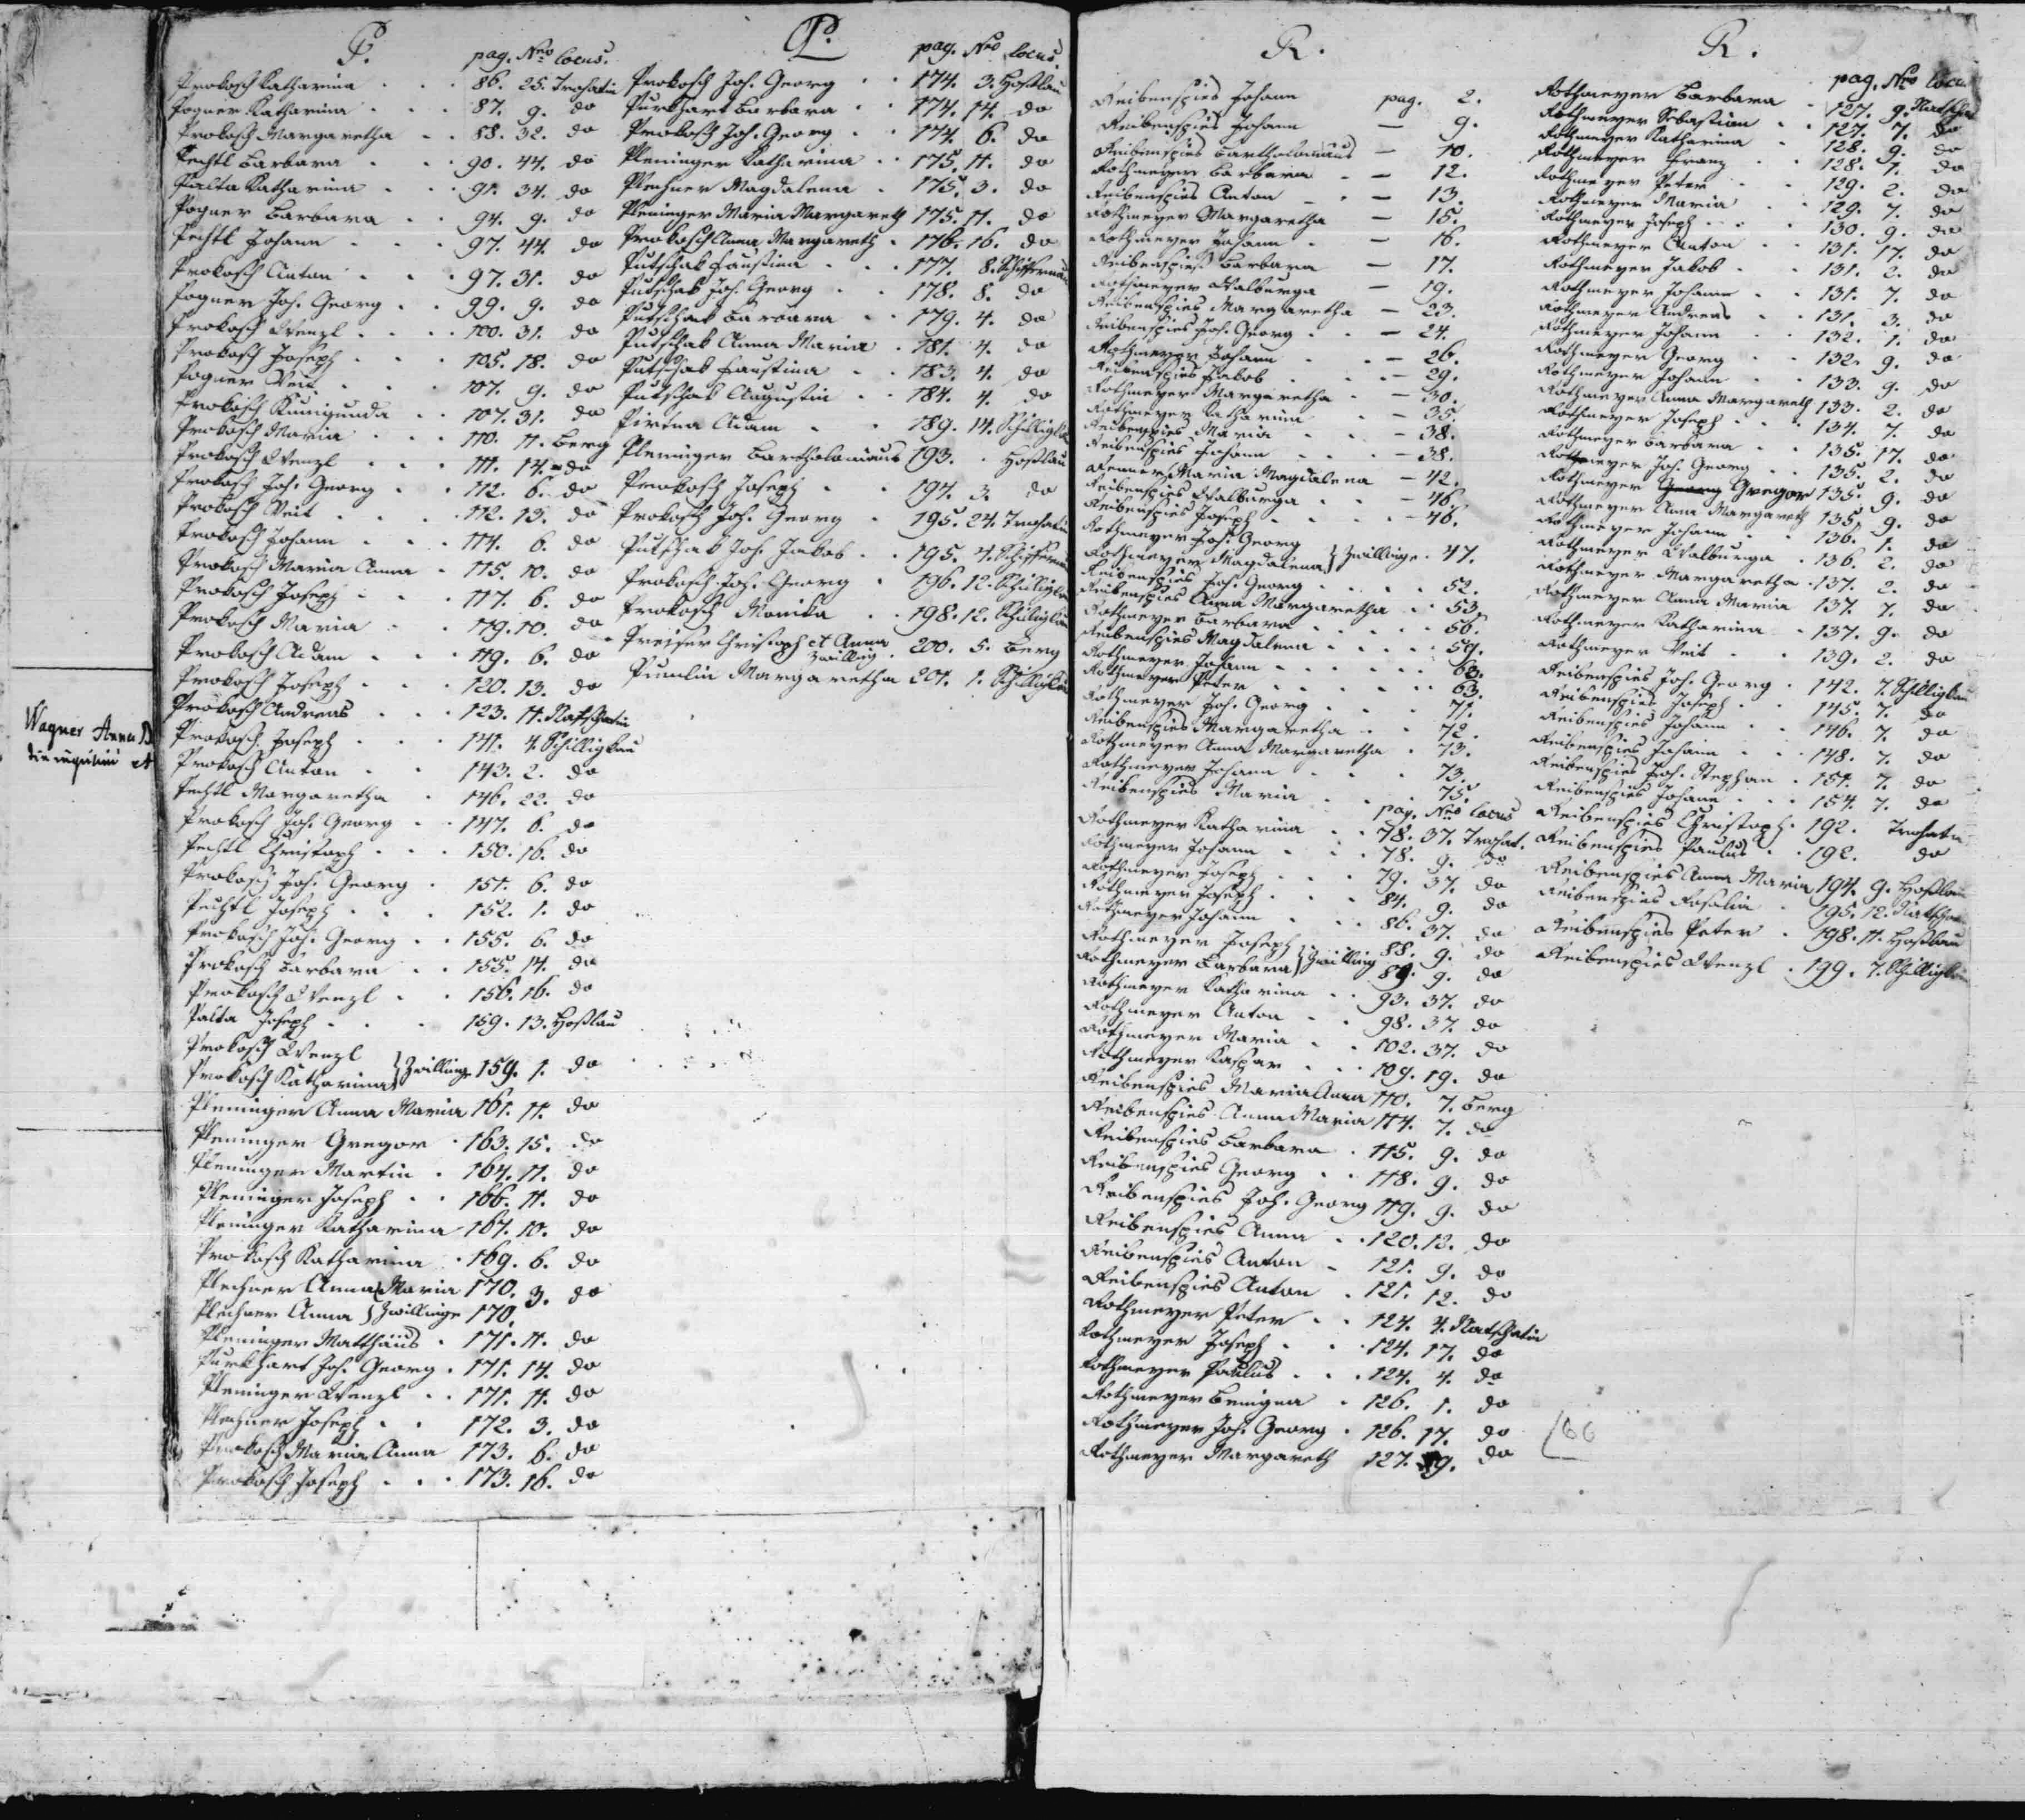 P.
pag. Nro locus.
Prokosch Katharina . . . 86. 25. Trohatin
Pogner Katharina . . . 87. 9. do
Prokosch Margaretha . . 88. 32. do
Pechtl Barbara . . . 90. 44. do
Palta Katharina . . . 91. 34. do
Pogner Barbara . . 94. 9. do
Pechtl Johann . . . 97. 44. do
Prokosch Anton . . . 97. 31. do
Pogner Joh. Georg . . 99. 9. do
Prokosch Wenzl . . . 100. 31. do
Prokosch Joseph . . . 105. 18. do
Pogner Veit . . . 107. 9. do
Prokosch Kunigunda . . 107. 31. do
Prokosch Maria . . . 110. 11. Berg
Prokosch Wenzl . . . 111. 14. do
Prokosch Joh. Georg . . 112. 6. do
Prokosch Veit . . . 112. 13. do
Prokosch Johann . . . 114. 6. do
Prokosch Maria Anna . 115. 10. do
Prokosch Joseph . . . 117. 6. do
Prokosch Maria . . 119. 10. do
Prokosch Adam . . . 119. 6. do
Prokosch Joseph . . . 120. 13. do
Prokosch Andreas . . . 123. 11. Natschetin
Prokosch Joseph . . . 141. 4. Schilligkau
Prokosch Anton . . . 143. 2. do
Pechtl Margaretha . 146. 22. do
Prokosch Joh. Georg . . 147. 6. do
Pechtl Christoph . . . 150. 16. do
Prokosch Joh. Georg . 151. 6. do
Pechtl Joseph . . . 152. 1. do
Prokosch Joh. Georg . . 155. 6. do
Prokosch Barbara . . 155. 14. do
Prokosch Wenzl . . 156. 16. do
Palta Joseph . . . 159. 13. Hoßlau
Prokosch Wenzl
Prokosch Katharina } Zwillinge 159. 1. do
Pleninger Anna Maria 161. 11. do
Pleninger Gregor . 163. 15. do
Pleninger Martin . 164. 11. do
Pleninger Joseph . . 166. 11. do
Pleninger Katharina 167. 10. do
Prokosch Katharina . 169. 6. do
Plechner Anna Maria 170. 3. do
Plechner Anna } Zwillinge 170.
Pleninger Matthäus . 171. 11. do
Purkhart Joh. Georg . 171. 14. do
Pleninger Wenzl . . 171. 11. do
Plechner Joseph . . 172. 3. do
Prokosch Maria Anna 173. 6. do
Prokosch Joseph . . . 173. 16. do
Wagner Anna B
P.
pag. Nro locus.
Prokosch Joh. Georg . . 174. 3. Hoßlau
Purkhart Barbara . . 174. 14. do
Prokosch Joh. Georg . . 174. 6. do
Pleninger Katharina . . 175. 11. do
Plechner Magdalena . 175. 3. do
Pleninger Maria Margareth 175. 11. do
Prokosch Anna Margareth . 176. 16. do
Putschak Faustina . . . 177. 8.
Putschak Joh. Georg . . 178. 8. do
Putschak Barbara . . 179. 4. do
Putschak Anna Maria . 181. 4. do
Putschak Faustina . . 183. 4. do
Putschak Augustin . . 184. 4. do
Pirtna Adam . . 189. 14.
Pleninger Bartholomäus 193. . Hoßlau
Prokosch Joseph . . 194. 3. do
Prokosch Joh. Georg . 195. 24. Trohatin
Putschak Joh. Jakob . . 195. 4.
Prokosch Joh. Georg . 196. 12. Schilligkau
Prokosch Monika . . 198. 12. Schilligkau
Preiser Christoph et Anna Zwilling . 200. 5. Berg
Pumlin Margaretha 201. 1. Schilligkau
R.
Reibenspies Johann pag. 2.
Reibenspies Johann — 9.
Reibenspies Bartholomäus — 10.
Rothmeyer Barbara . — 12.
Reibenspies Anton . — 13.
Rothmeyer Margaretha — 15.
Rothmeyer Johann . — 16.
Reibenspies Barbara — 17.
Rothmeyer Walburga — 19.
Reibenspies Margaretha — 23.
Reibenspies Joh. Georg . — 24.
Rothmeyer Johann . — 26.
Reibenspies Jakob . . — 29.
Rothmeyer Margaretha . — 30.
Rothmeyer Katharina . — 35.
Reibenspies Maria . . — 38.
Reibenspies Johann . . — 38.
Maria Magdalena — 42.
Reibenspies Walburga . . — 46.
Reibenspies Joseph . . . — 46.
Rothmeyer Joh. Georg
Rothmeyer Magdalena } Zwillinge . 47.
Reibenspies Joh. Georg . . . 52.
Reibenspies Anna Margaretha . . 53.
Rothmeyer Barbara . . . . 56.
Reibenspies Magdalena . . . . 57.
Rothmeyer Johann . . . . 63.
Rothmeyer Peter . . . . 63.
Rothmeyer Joh. Georg . . . 71.
Reibenspies Margaretha . . 72.
Rothmeyer Anna Margaretha . 73.
Rothmeyer Johann . . . 73.
Reibenspies Maria . . . 75.
pag. Nro locus
Rothmeyer Katharina . . 78. 37. Trohat.
Rothmeyer Johann . . . 78. 9. do
Rothmeyer Joseph . . . 79. 37. do
Rothmeyer Joseph . . . 84. 9. do
Rothmeyer Johann . . . 86. 37. do
Rothmeyer Joseph 88. 9. do
Rothmeyer Barbara } Zwilling 89. 9. do
Rothmeyer Katharina . . 93. 37. do
Rothmeyer Anton . . 98. 37. do
Rothmeyer Maria . . 102. 37. do
Rothmeyer Kaspar . . . 109. 19. do
Reibenspies Maria Anna 110. 7. Berg
Reibenspies Anna Maria 114. 7. do
Reibenspies Barbara . 115. 9. do
Reibenspies Georg . . 118. 9. do
Reibenspies Joh. Georg 119. 9. do
Reibenspies Anna . . 120. 12. do
Reibenspies Anton . 121. 9. do
Reibenspies Anton . 121. 12. do
Rothmeyer Peter . . 124. 4. Natschetin
Rothmeyer Joseph . . 124. 17. do
Rothmeyer Paulus . . . 124. 4. do
Rothmeyer Benigna . 126. 1. do
Rothmeyer Joh. Georg . 126. 17. do
Rothmeyer Margareth 127. 9. do
R.
pag. Nro locus
Rothmeyer Barbara . 127. 9. Natschet
Rothmeyer Sebastian . . 127. 7. do
Rothmeyer Katharina . 128. 9. do
Rothmeyer Franz . . 128. 7. do
Rothmeyer Peter . . 129. 2. do
Rothmeyer Maria . . 129. 7. do
Rothmeyer Joseph . . . 130. 9. do
Rothmeyer Anton . . 131. 17. do
Rothmeyer Jakob . . 131. 2. do
Rothmeyer Johann . . 131. 7. do
Rothmeyer Andreas . . 131. 3. do
Rothmeyer Johann . . 132. 1. do
Rothmeyer Georg . . 132. 9. do
Rothmeyer Johann . . 133. 9. do
Rothmeyer Anna Margareth 133. 2. do
Rothmeyer Joseph . . . 134. 7. do
Rothmeyer Barbara . . 135. 17. do
Rothmeyer Joh. Georg . . 135. 2. do
Rothmeyer Georg Gregor 135. 9. do
Rothmeyer Anna Margareth 135. 9. do
Rothmeyer Johann . . 136. 1. do
Rothmeyer Walburga . 136. 2. do
Rothmeyer Margaretha . 137. 2. do
Rothmeyer Anna Maria 137. 7. do
Rothmeyer Katharina . 137. 9. do
Rothmeyer Veit . . 139. 2. do
Reibenspies Joh. Georg . 142. 7. Schilligkau
Reibenspies Joseph . . 145. 7. do
Reibenspies Johann . 146. 7. do
Reibenspies Johann . . 148. 7. do
Reibenspies Joh. Stephan . 151. 7. do
Reibenspies Johann . . . 154. 7. do
Reibenspies Christoph . 192. Trohatin
Reibenspies Paulus . . 192. do
Reibenspies Anna Maria 194. 9. Hoßlau
Reibenspies Rosalia . 195. 12. Natschet
Reibenspies Peter . 198. 11. Hoßlau
Reibenspies Wenzl . 199. 7. Schilligkau
66